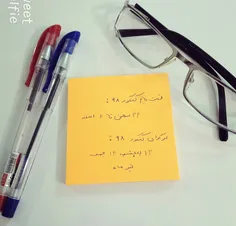 weet
lfie
ثبت نام کنکور ۹۸ :
۲۲ بهمن تا ۲ اسفند
برگزاری کنکور ۹۸ :
۱۳ پنجشنبه ۱۴ جمعه
تیر ماه